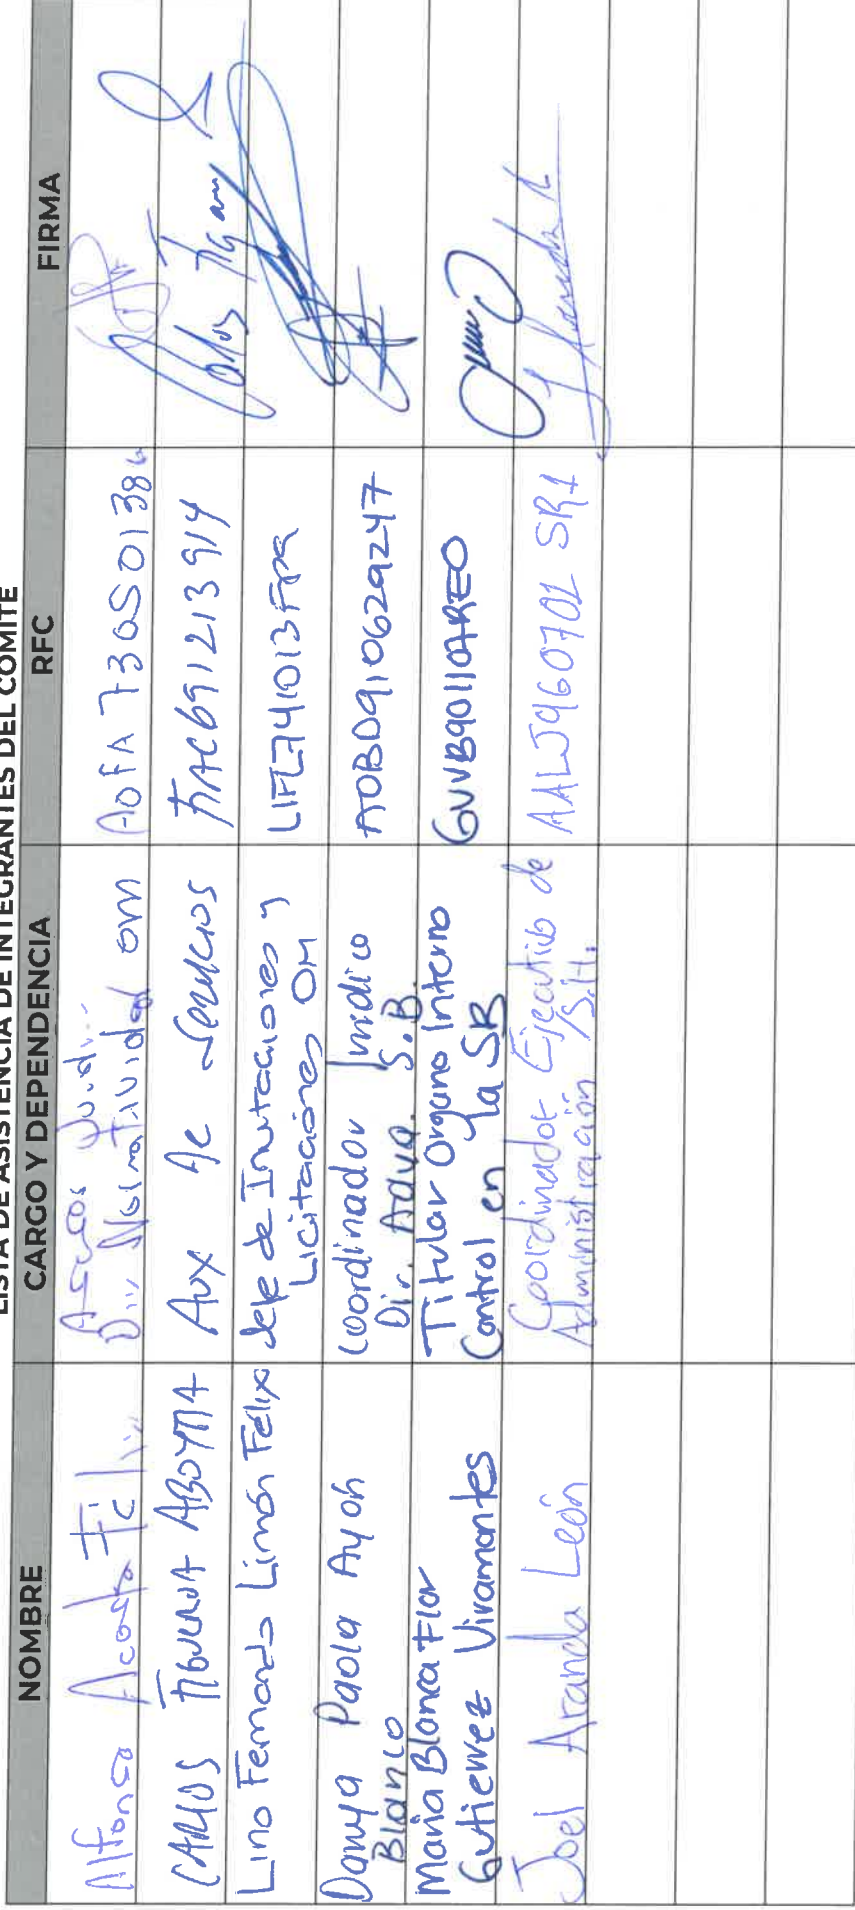 LISTA DE ASISTENCIA DE INTEGRANTES DEL COMITÉ
NOMBRE
CARGO Y DEPENDENCIA
RFC
FIRMA
Alfonso Acosta
Div. Normatividad OM
CARLOS FIGUEROA ABOYTIA
Aux de Servicios
FIAC691213914
Carlos Figueroa
Lino Fernando Limón Felix
Jefe de Invitaciones y
Licitaciones OM
LIFL741013FPA
Danya Paola Ayon
Blanco
Coordinador Juridico
Dir. Admva. S.B.
AOBD910629247
Maria Blanca Flor
Gutierrez Viramontes
Titular Organo Interno
Control en la SB
GUVB901107REO
Joel Aranda León
Coordinador Ejecutivo de
Administración /S.H.
AALJ960702 SR1